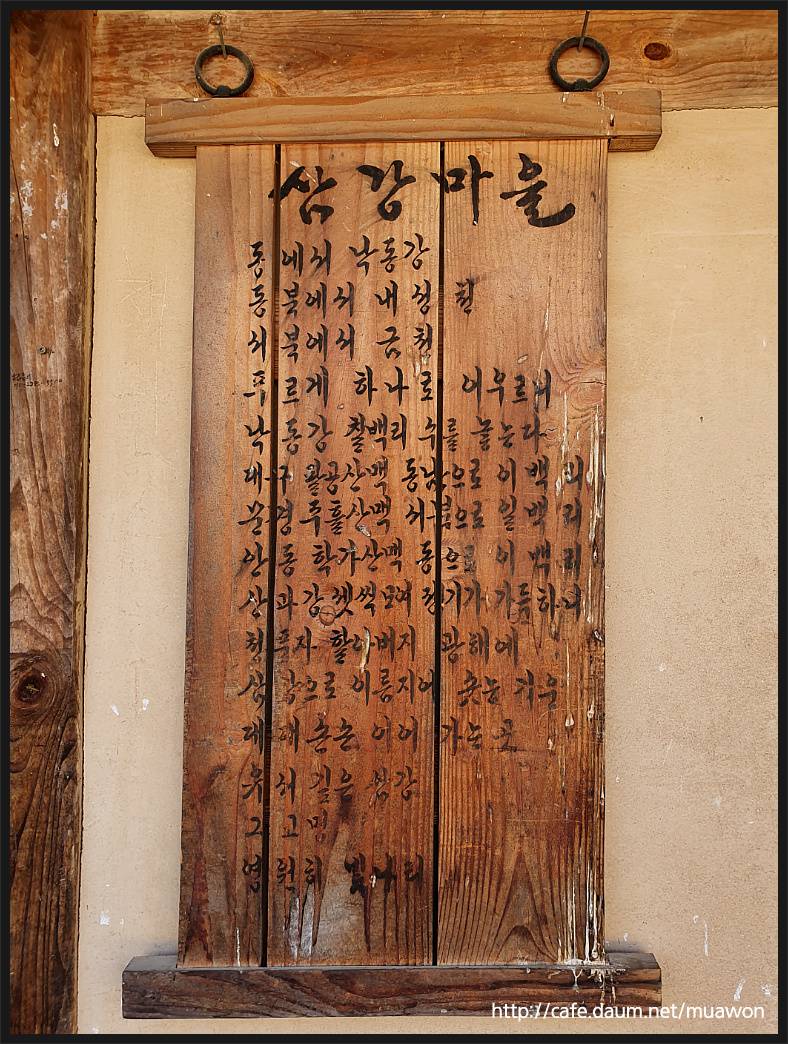 삼강마을
동에서 낙동강
동북에서 내성천
서북에서 금천
푸르게 하나로 어우르니
낙동강 칠백리 수를 놓는다
대구 팔공산맥 동남으로 이백리
문경 주흘산맥 서북으로 일백리
안동 학가산맥 동으로 이백리
산과 강 셋씩 모여 정기가 가득하니
청풍자 할아버지 광해에
삼강으로 이름지어 솟는 기운
대해 손손 이어 가는 곳
유서 깊은 삼강
그 고명
영원히 빛나리
http://cafe.daum.net/muawon